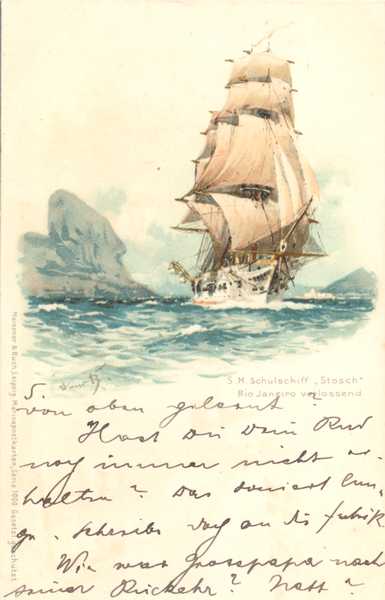 S. M. Schulschiff „Stosch“
Rio Janeiro verlassend
von oben gelesen?
Hast Du Dein Rad
noch immer nicht er-
halten? Das dauert lan-
ge, schreibe doch an die Fabrik.
Wie war Grosspapa nach
seiner Rückkehr? Nett?
Meissner & Buch, Leipzig, Marinepostkarten, Serie 1001 Gesetzl. geschützt